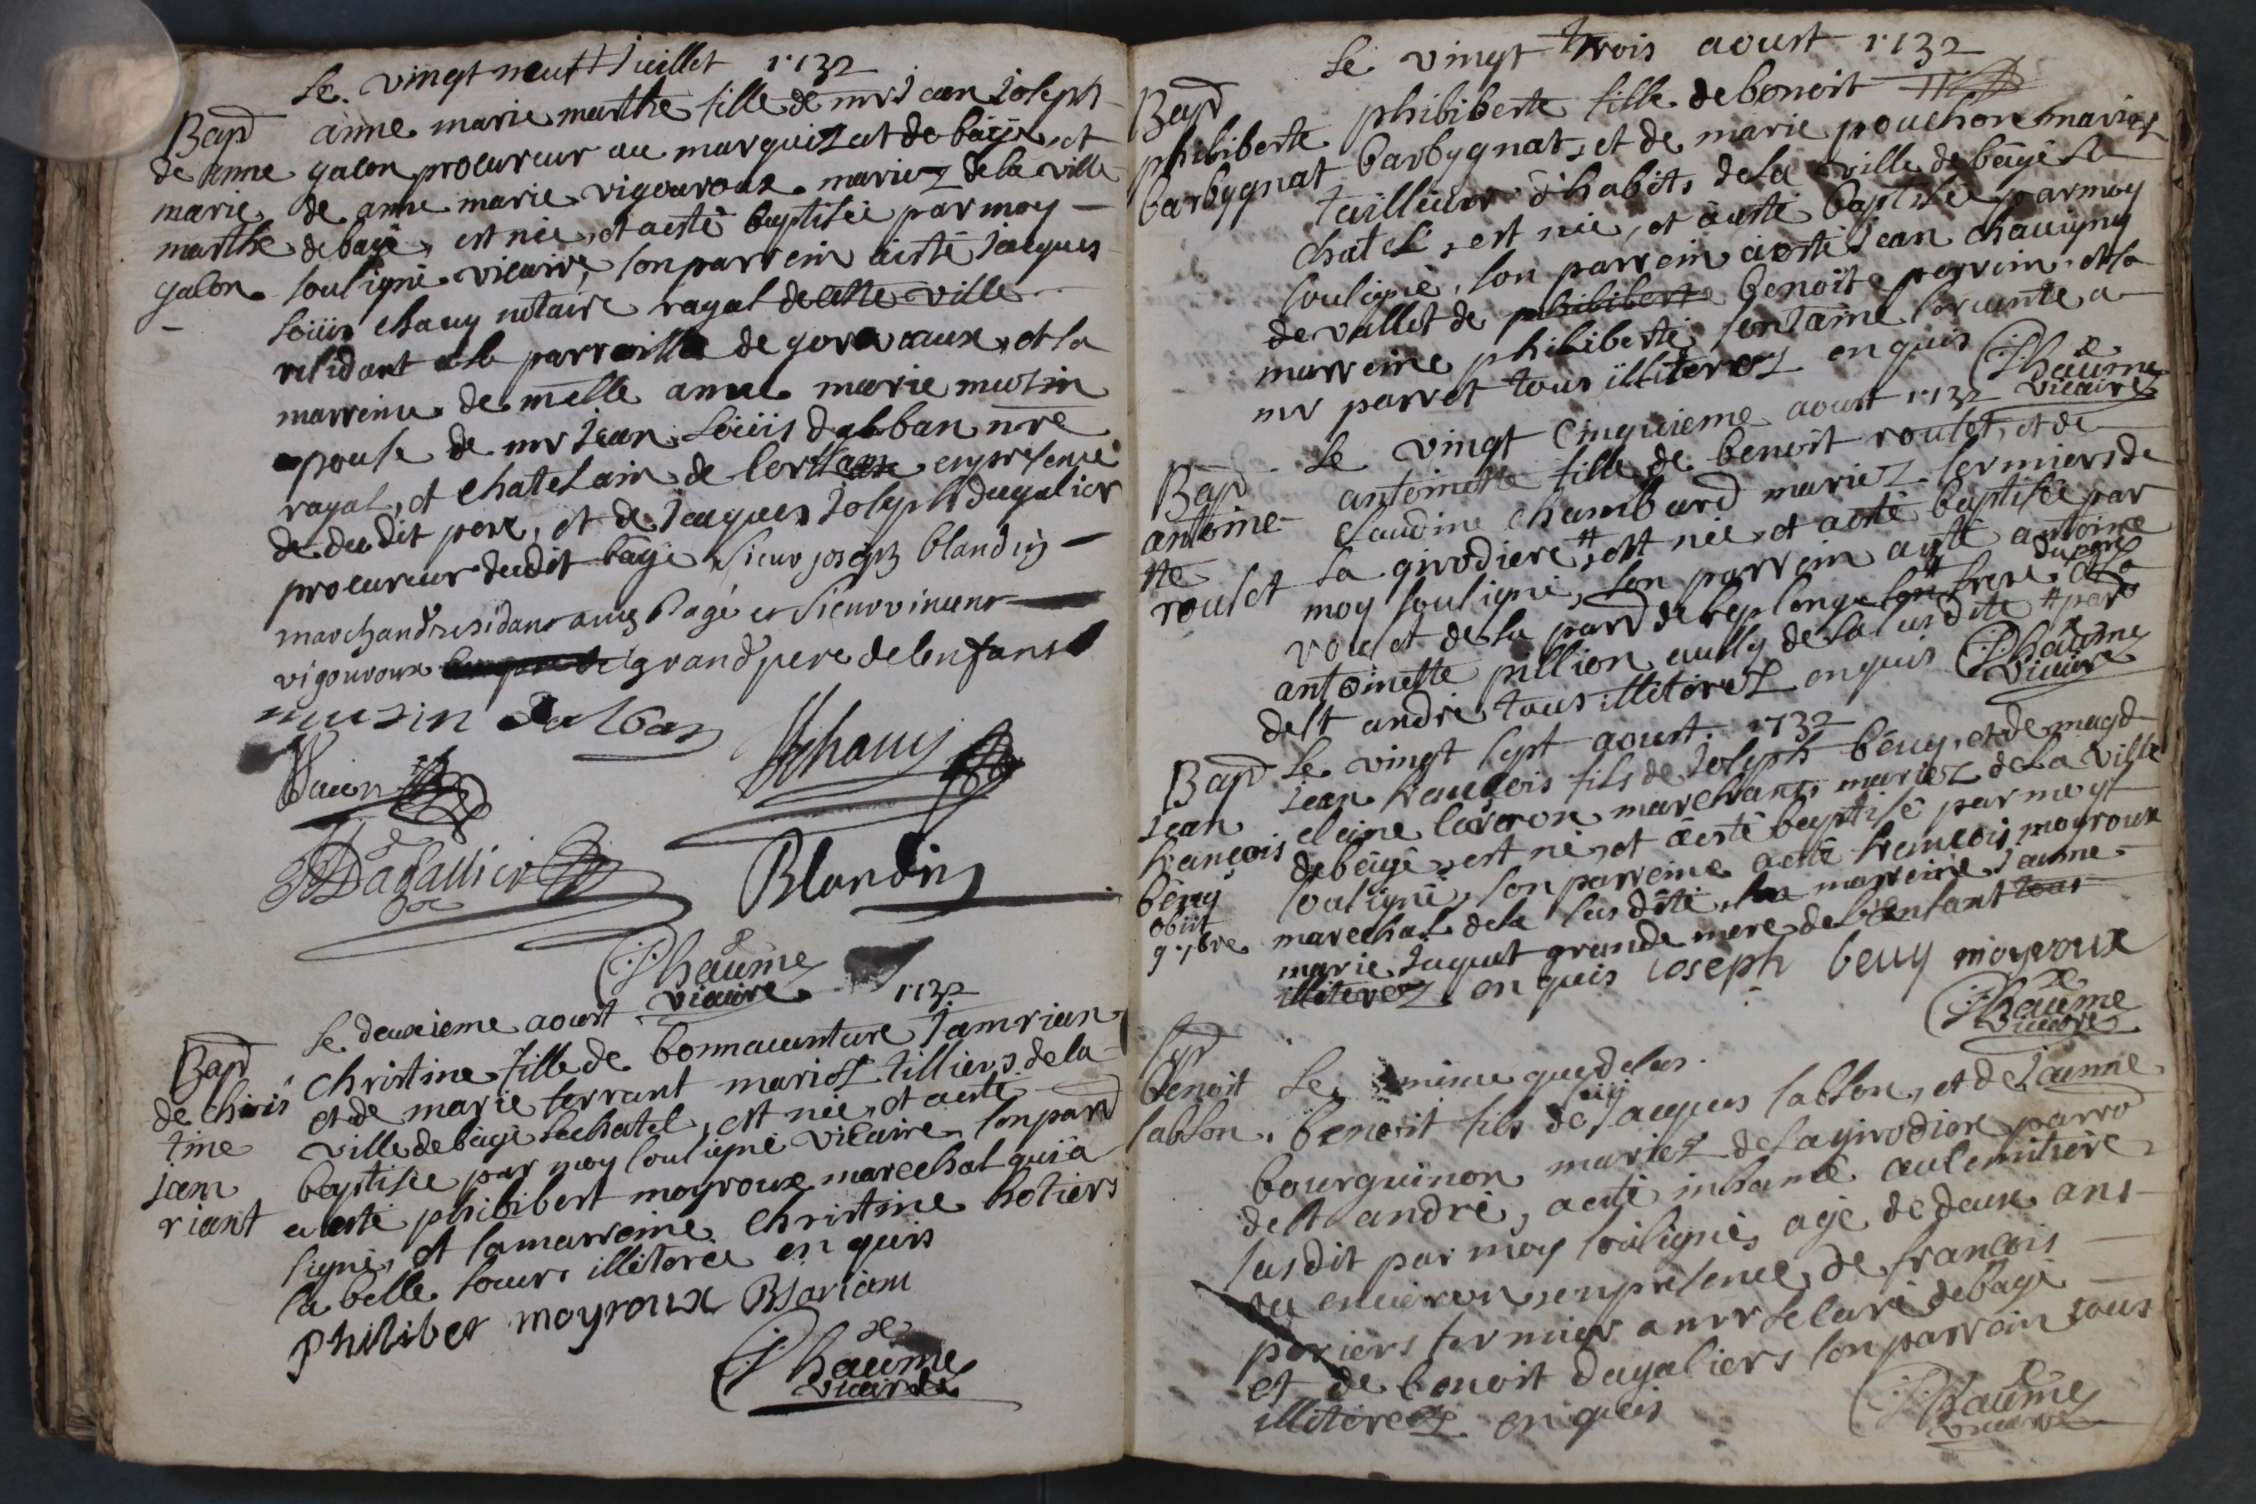 Le vingt neuf Juillet 1732
Bapd
de anne
marie
marthe
galon
anne marie marthe fille de mr Jean Joseph
galon procureur au marquizat de bâgé, et
de anne marie vigouroux mariez de la ville
de bagé, est née, et a esté baptisée par moy
soussigné vicaire, son parrein a esté Jacques
Loüis chauy notaire royal de cette ville
residant a la parroisse de gorrevaux, et la
marreine de melle anne marie musin
epouse de mr Jean Loüis dalban nre
royal, et chatelain de en presence
de du dit pere, et de Jacques Joseph dagalier
procureur dudit bâgé Sieur joseph blandin
marchand residant audit Bagé et Sieur vincent
vigouroux grand pere de lenfant
musin dalban
JLchauy
Dagallier
Blandin
Rhaüme
vicaire
Le deuxieme aoust 1732
Bapd
de chris
tine
jam
riant
Christine fille de bonnaventure Jamrian
et de marie ferrant mariez tilliers de la
ville de bâgé le chatel, est née, et a esté
baptisée par moy soussigné vicaire son parr
a esté philibert moyroux marechal qui a
signé, et la marreine christine hotiers
sa belle soeur illiterée enquis
philiber moyroux
vicaire
Le vingt trois aoust 1732
Bapd
philiberte
barbygnat
phibiberte fille de benoit
barbygnat, et de marie pouchon mariez
tailleur d'habits de la ville de bâgé le
chatel, est née, et a esté baptisée par moy
soussigné, son parrein a esté Jean chauigny
de vallet de philibert benoit perrein, et la
marreine philiberte fontaine servante a
mr parret tous illiterez enquis
vicaire
Le vingt cinquieme aoust 1732
Bapd
antoine
tte
roulet
antoinette fille de benoit roulet, et de
claudine chambard mariez fermiers de
la girodiere, est née, et a esté baptisée par
moy soussigné, son parrein a esté antoine
roulet de la parr de replonge son frere du pere et la
antoinette pillion aussy de la susdite parr
de st andré tous illiterez enquis
vicaire
Le vingt sept aoust 1732
Bapd
Jean
françois
beny
obiit
9. 7bre
Jean françois fils de Joseph beuy, et de magd
eleine laveron marchants mariez de la ville
de bâgé, est né, et a esté baptisé par moy
soussigné, son parreine a esté françois moyroux
marechal de la susdite, sa marreine Janne
marie Juguet grande mere de l'enfant tous
illiterez enquis joseph beuy moyroux
vicaire
Spr
benoit
sablon
Le mesme que dessus
benoit fils de Jacques sablon, et de Janne
bourguinon mariez de la girodiere parro
de st andré, a esté inhumé au cemitiere
susdit par moy soussigné, agé de deux ans
ou environ en presence de françois
periers fermier a mr le curé de bâgé
et de benoit dagaliers son parrain tous
illiterez enquis
vicaire